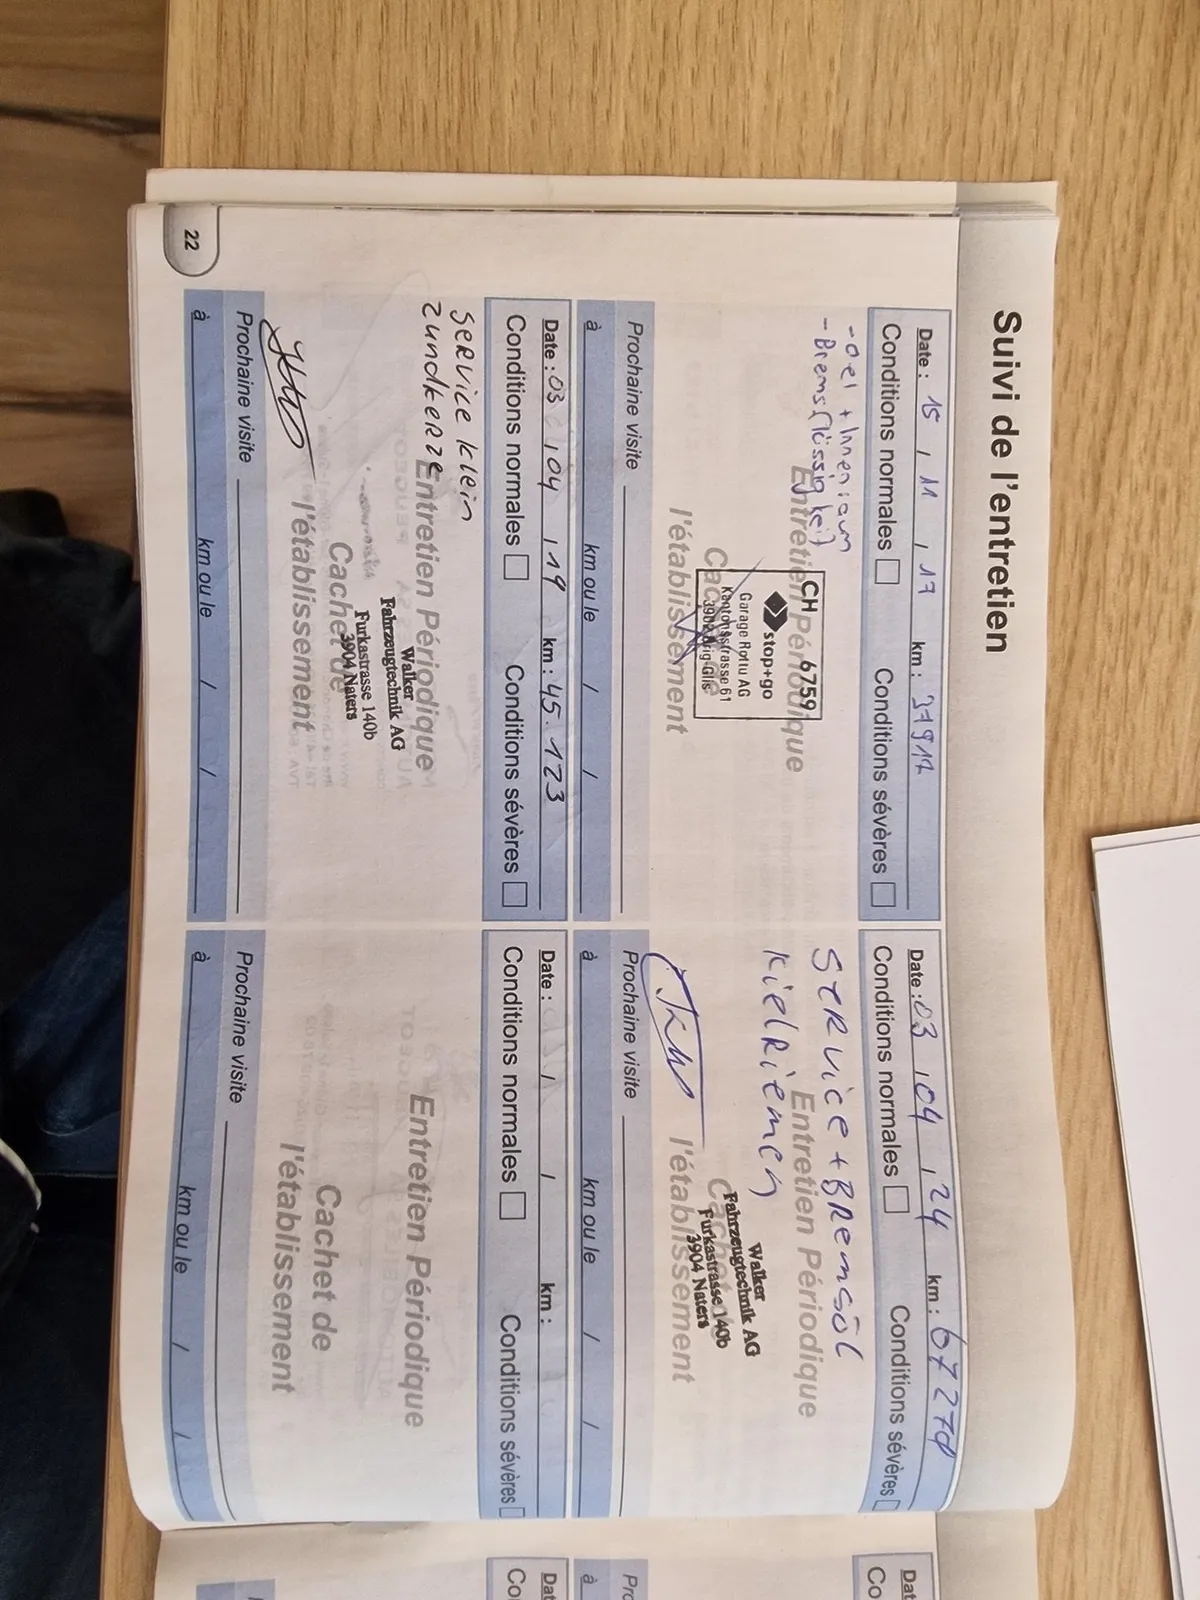 Suivi de l'entretien
Date : 15 / 11 / 17 km : 37917
Conditions normales Conditions sévères
- Oel + Innenraum
- Bremsflüssigkeit
Entretien Périodique
CH 6759
stop+go
Garage Rottu AG
Kantonsstrasse 61
3902 Brig-Glis
Cachet de
l'établissement
Prochaine visite
à km ou le / /
Date : 03 / 04 / 19 km : 45.123
Conditions normales Conditions sévères
SERVICE Klein
Zundkerze
Entretien Périodique
Walker
Fahrzeugtechnik AG
Furkastrasse 140b
3904 Naters
Cachet de
l'établissement
Prochaine visite
à km ou le / /
Date : 03 / 04 / 24 km : 67270
Conditions normales Conditions sévères
SERVICE + BREMSÖL
Kielriemen
Entretien Périodique
Walker
Fahrzeugtechnik AG
Furkastrasse 140b
3904 Naters
l'établissement
Prochaine visite
à km ou le / /
Date : / / km :
Conditions normales Conditions sévères
Entretien Périodique
Cachet de
l'établissement
Prochaine visite
à km ou le / /
22
Dat
Co
Pro
à
Dat
Co